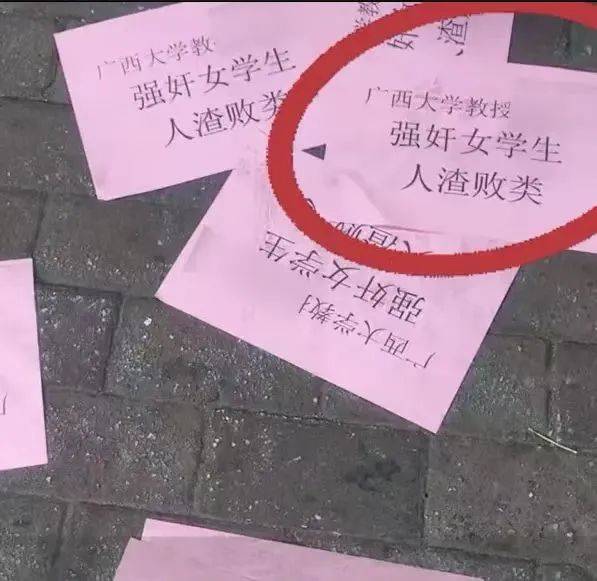 广西大学教
强奸女学生
人渣败类
广西大学教授
强奸女学生
人渣败类
广西大学教
强奸女学生